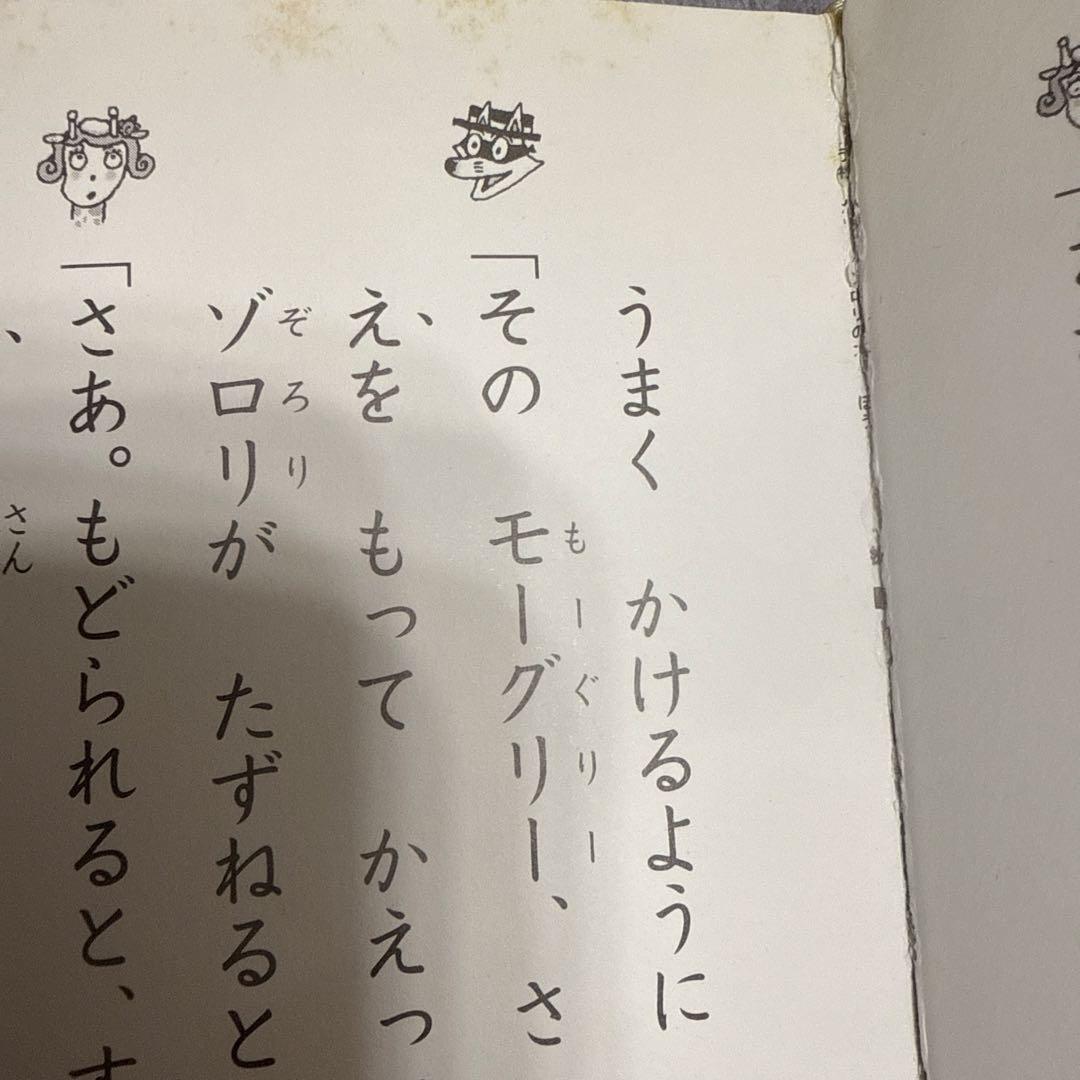 うまく かけるように
「その モーグリー、さ
もーぐりー
え、を もって かえっ
ゾロリが たずねると
ぞろり
「さあ。もどられると、す
さん